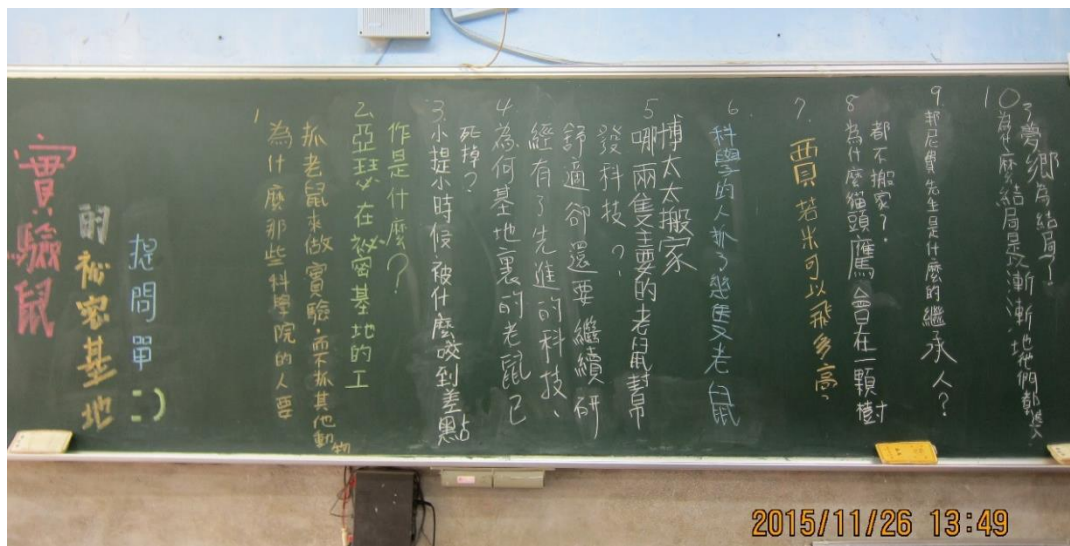 實驗鼠
的祕密基地
提問單:)
1.為什麼那些科學院的人要
抓老鼠來做實驗,而不抓其他動物
2.亞瑟在祕密基地的工
作是什麼?
3.小提小時候被什麼咬到差點
死掉?
4.為何基地裏的老鼠已
經有了先進的科技、
舒適卻還要繼續研
發科技?
5.哪兩隻主要的老鼠幫
博太太搬家
6.科學的人抓了幾隻老鼠
7.賈若米可以飛多高?
8.為什麼貓頭鷹會在一顆樹
都不搬家?
9.邦尼費先生是什麼的繼承人?
10.為什麼結局是漸漸地他們都進入
了夢鄉為結局了?
2015/11/26 13:49